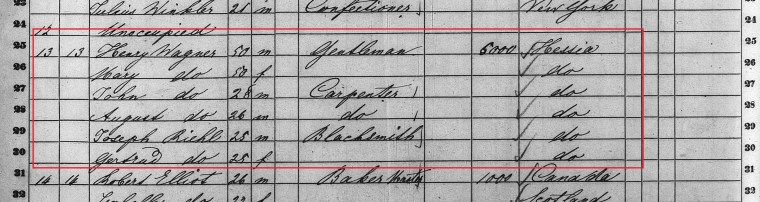 23 Julius Winkler 21 m Confectioner New York
24 12 Unoccupied
25 13 13 Henry Wagner 50 m Gentleman 5000 Hessia 25
26 Mary do 50 f do 26
27 John do 28 m Carpenter do 27
28 August do 26 m do do 28
29 Joseph Riehl 25 m Blacksmith do 29
30 Gertrud do 25 f do 30
31 14 14 Robert Elliot 26 m Baker Master 1000 Canada 31
32 f Scotland 32